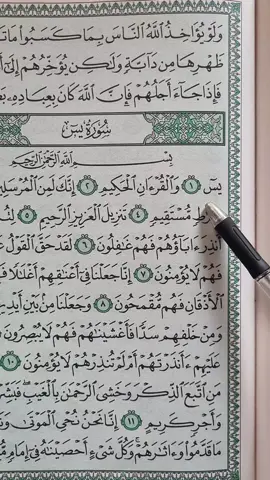 وَلَوْ يُؤَاخِذُ ٱللَّهُ ٱلنَّاسَ بِمَا كَسَبُوا۟ مَا تَ
ظَهْرِهَا مِن دَآبَّةٍ وَلَٰكِن يُؤَخِّرُهُمْ إِلَىٰٓ أَ
فَإِذَا جَآءَ أَجَلُهُمْ فَإِنَّ ٱللَّهَ كَانَ بِعِبَادِهِۦ بَ
سُورَةُ يسٓ
بِسْمِ ٱللَّهِ ٱلرَّحْمَٰنِ ٱلرَّحِيمِ
يسٓ ١ وَٱلْقُرْءَانِ ٱلْحَكِيمِ ٢ إِنَّكَ لَمِنَ ٱلْمُرْسَلِ
صِرَٰطٍ مُّسْتَقِيمٍ ٤ تَنزِيلَ ٱلْعَزِيزِ ٱلرَّحِيمِ ٥ لِتُ
أُنذِرَ ءَابَآؤُهُمْ فَهُمْ غَٰفِلُونَ ٦ لَقَدْ حَقَّ ٱلْقَوْلُ عَ
فَهُمْ لَا يُؤْمِنُونَ ٧ إِنَّا جَعَلْنَا فِىٓ أَعْنَٰقِهِمْ أَغْلَٰلًا فَ
ٱلْأَذْقَانِ فَهُم مُّقْمَحُونَ ٨ وَجَعَلْنَا مِنۢ بَيْنِ أَيْدِ
وَمِنْ خَلْفِهِمْ سَدًّا فَأَغْشَيْنَٰهُمْ فَهُمْ لَا يُبْصِرُونَ
عَلَيْهِمْ ءَأَنذَرْتَهُمْ أَمْ لَمْ تُنذِرْهُمْ لَا يُؤْمِنُونَ ١٠
مَنِ ٱتَّبَعَ ٱلذِّكْرَ وَخَشِىَ ٱلرَّحْمَٰنَ بِٱلْغَيْبِ فَبَشِّرْ
وَأَجْرٍ كَرِيمٍ ١١ إِنَّا نَحْنُ نُحْىِ ٱلْمَوْتَىٰ وَ
مَا قَدَّمُوا۟ وَءَاثَٰرَهُمْ وَكُلَّ شَىْءٍ أَحْصَيْنَٰهُ فِىٓ إِمَامٍ مُّ